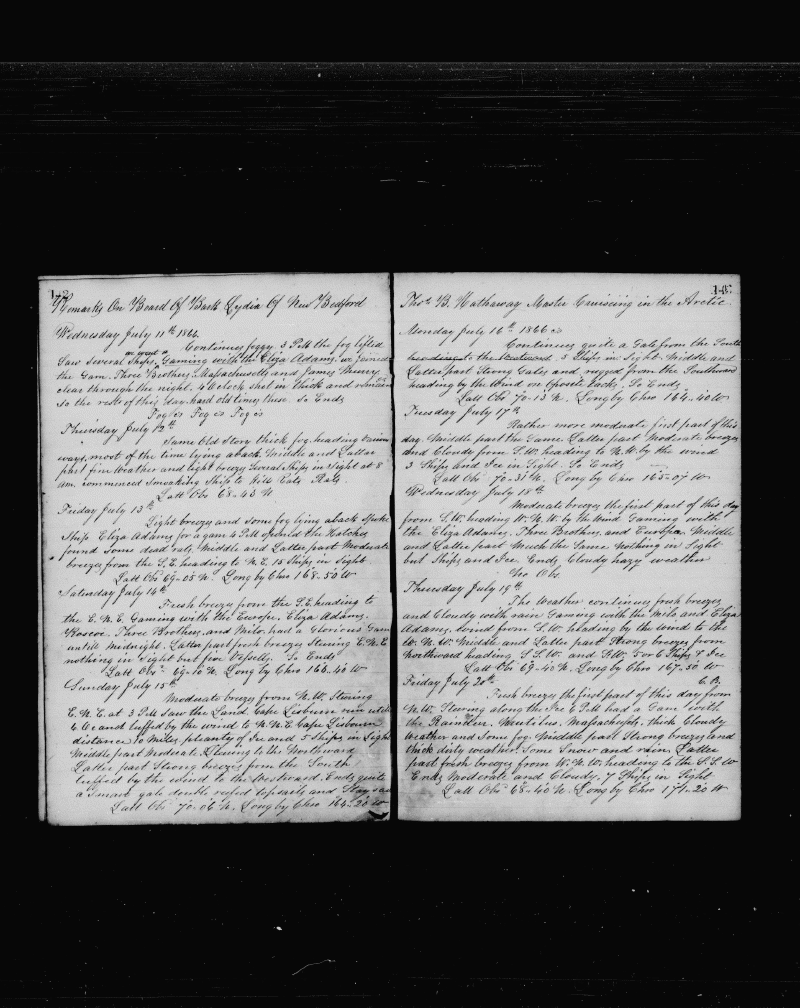 142
Remarks On Board Of Bark Lydia Of New Bedford
Wednesday July 11th 1866
Continues foggy. 3 P.M. the fog lifted
Saw several Ships, Gaming with the Eliza Adams, we joined
the Gam. Three Brothers, Massachusetts and James Murry
clear through the night. 4 O clock shut in thick and
so the rest of this day. hard old times these. So Ends
Fog Fog Fog
Thursday July 12th
Same Old Story thick fog. heading
ways, most of the time lying aback. Middle and Latter
part fine Weather and light breeze Several Ships in Sight at 8
am. commenced Smoaking Ship to Kill Cats, Rats,
Latt Obs 68-43 N
Friday July 13th
Light breeze and some fog lying aback Spoke
Ship Eliza Adams for a gam 4 P.M. opened the Hatches
found Some dead rats. Middle and Latter part Moderate
breezes from the S.E. heading to N.E. 15 Ships in Sight
Latt Obs 69-05 N. Long by Chro 168-50 W
Saturday July 14th
Fresh breeze from the S.E. heading to
the E.N.E. Gaming with the Europe, Eliza Adams,
Roscoe, Three Brothers, and Milo, had a Glorious Gam
untill Midnight. Latter part fresh breezes Stering E.N.E
nothing in Sight but five Vessells. So Ends
Latt Obs 69-10 N. Long by Chro 168-40 W
Sunday July 15th
Moderate breeze from N.W. Stering
E.N.E. at 3 P.M. Saw the Land Cape Lisburn
6 O c and luffed by the wind to N.N.E. Cape Lisburn
distance 10 Miles, pleanty of Ice and 5 Ships in Sight
Middle part Moderate. Stering to the Northward
Latter part Strong breezes from the South
luffed by the wind to the Westward. Ends quite
a smart gale double reefed topsails and
Latt Obs 70-06 N. Long by Chro 164-20 W
Thos B. Hathaway Master Cruiseing in the Arctic
Monday July 16th 1866
Continues quite a Gale from the South
heading to the Westward. 3 Ships in Sight. Middle and
Latter part Strong Gales and rugged from the Southward
heading by the Wind on Oposite tacks. So Ends
Latt Obs 70-13 N. Long by Chro 164-40 W
Tuesday July 17th
Rather more moderate first part of this
day. Middle part the Same. Latter part Moderate breezes
and Cloudy from S.W. heading to N.W. by the wind
3 Ships and Ice in Sight. So Ends
Latt Obs 70-31 N. Long by Chro 165-07 W
Wednesday July 18th
Moderate breezes the first part of this day
from S.W. heading W.N.W. by the Wind. Gaming with
the Eliza Adams, Three Brothers, and Europa. Middle
and Latter part Much the Same Nothing in Sight
but Ships and Ice. Ends Cloudy hazy weather
No Obs.
Thursday July 19th
The Weather continues fresh breezes
and Cloudy with rain Gaming with the Milo, and Eliza
Adams. Wind from S.W. heading by the Wind to the
W.N.W. Middle and Latter part Strong breezes from
Northward heading S.S.W. and 5 or 6 Ships & Ice
Latt Obs 69-40 N. Long by Chro 167-50 W
Friday July 20th
Fresh breezes the first part of this day from
N.W. Stering along the Ice 6 P.M. had a Gam with
the Raindeer, Nautilus, Massachusets, thick Cloudy
Weather and Some Fog. Middle part Strong breezes and
thick dirty weather. Some Snow and rain, Latter
part fresh breezes from W.N.W. heading to the S.S.W
Ends Moderate and Cloudy. 7 Ships in Sight
Latt Obs 68-40 N. Long by Chro 171-20 W